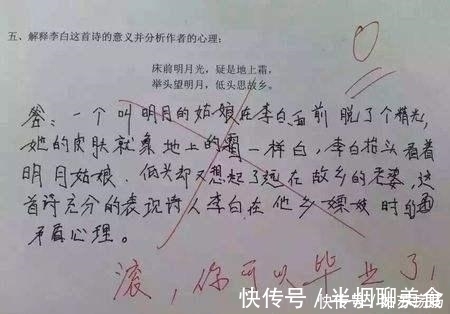 五、解释李白这首诗的意义并分析作者的心理:
床前明月光，疑是地上霜，
举头望明月，低头思故乡。
0
答：一个叫明月的姑娘在李白面前脱了个精光，
她的皮肤就象地上的霜一样白，李白抬头看着
明月姑娘、低头却又想起了远在故乡的老婆，这
首诗充分的表现诗人李白在他乡嫖妓时的
矛盾心理。
滚，你可以毕业了！
快传号／半烟聊美食